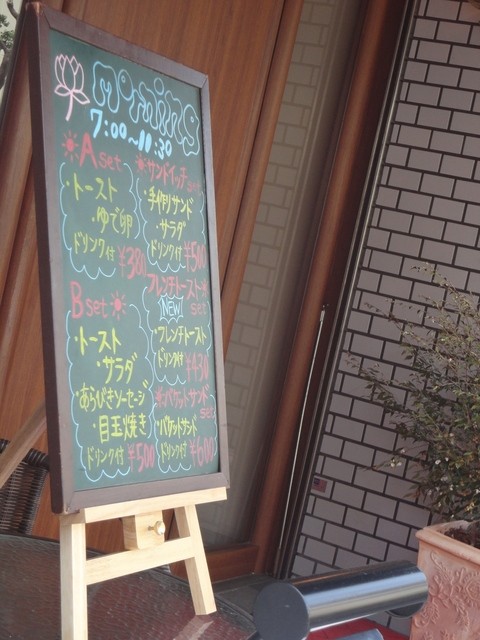 Morning
7:00~11:30
Aset
・トースト
・ゆで卵
ドリンク付 ¥380
Bset
・トースト
・サラダ
・あらびきソーセージ
・目玉焼き
ドリンク付 ¥500
サンドイッチset
・手作りサンド
・サラダ
ドリンク付 ¥500
フレンチトースト
set
NEW!
・フレンチトースト
ドリンク付 ¥430
バケットサンド
set
・バケットサンド
ドリンク付 ¥600